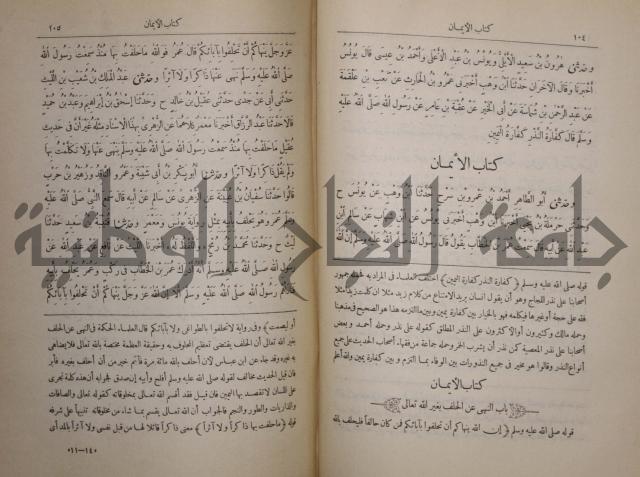 ١٠٤
كتاب الايمان
وحدثني هرون بن سعيد الأيلي ويونس بن عبد الأعلى وأحمد بن عيسى قال يونس
أخبرنا وقال الآخران حدثنا ابن وهب أخبرني عمرو بن الحارث عن كعب بن علقمة
عن عبد الرحمن بن شماسة عن أبي الخير عن عقبة بن عامر عن رسول الله صلى الله عليه
وسلم قال كفارة النذر كفارة اليمين
كتاب الأيمان
وحدثني أبو الطاهر أحمد بن عمرو بن سرح حدثنا ابن وهب عن يونس ح
وحدثني حرملة بن يحيى أخبرنا ابن وهب أخبرني يونس عن ابن شهاب عن سالم بن
عبد الله عن أبيه قال سمعت عمر بن الخطاب يقول قال رسول الله صلى الله عليه وسلم إن الله
قوله صلى الله عليه وسلم ﴿ كفارة النذر كفارة اليمين ﴾ اختلف العلماء في المراد به فحمله جمهور
أصحابنا على نذر اللجاج وهو أن يقول انسان يريد الامتناع من كلام زيد مثلا ان كلمت زيدا مثلا
فلله على حجة أو غيرها فيكلمه فهو بالخيار بين كفارة يمين وبين ما التزمه هذا هو الصحيح في مذهبنا
وحمله مالك وكثيرون أو الأكثرون على النذر المطلق كقوله على نذر وحمله أحمد وبعض
أصحابنا على نذر المعصية كمن نذر أن يشرب الخمر وحمله جماعة من فقهاء أصحاب الحديث على جميع
أنواع النذر وقالوا هو مخير في جميع النذورات بين الوفاء بما التزم وبين كفارة يمين والله أعلم
كتاب الايمان
باب النهى عن الحلف بغير الله تعالى
قوله صلى الله عليه وسلم ﴿ إن الله ينهاكم أن تحلفوا بآبائكم فمن كان حالفا فليحلف بالله
كتاب الايمان
١٠٥
عز وجل ينهاكم أن تحلفوا بآبائكم قال عمر فوالله ما حلفت بها منذ سمعت رسول الله
صلى الله عليه وسلم نهى عنها ذاكرا ولا آثرا وحدثني عبد الملك بن شعيب بن الليث
حدثني أبي عن جدي حدثني عقيل بن خالد ح وحدثنا إسحق بن إبراهيم وعبد بن حميد
قالا حدثنا عبد الرزاق أخبرنا معمر كلاهما عن الزهرى بهذا الاسناد مثله غير أن في حديث
عقيل ما حلفت بها منذ سمعت رسول الله صلى الله عليه وسلم ينهى عنها ولا تكلمت بها
ولم يقل ذاكرا ولا آثرا وحدثنا أبو بكر بن أبي شيبة وعمرو الناقد وزهير بن حرب
قالوا حدثنا سفيان بن عيينة عن الزهرى عن سالم عن أبيه قال سمع النبي صلى الله عليه
وسلم عمر وهو يحلف بأبيه بمثل رواية يونس ومعمر وحدثنا قتيبة بن سعيد حدثنا
ليث ح وحدثنا محمد بن رمح واللفظ له أخبرنا الليث عن نافع عن عبد الله عن
رسول الله صلى الله عليه وسلم أنه أدرك عمر بن الخطاب في ركب وعمر يحلف بأبيه
فناداهم رسول الله صلى الله عليه وسلم ألا إن الله عز وجل ينهاكم أن تحلفوا بآبائكم
أو ليصمت﴾ وفي رواية لا تحلفوا بالطواغي ولا بآبائكم قال العلماء الحكمة في النهى عن الحلف
بغير الله تعالى أن الحلف يقتضي تعظيم المحلوف به وحقيقة العظمة مختصة بالله تعالى فلا يضاهي
به غيره وقد جاء عن ابن عباس لأن أحلف بالله مائة مرة فآثم خير من أن أحلف بغيره فأبر
فان قيل الحديث مخالف لقوله صلى الله عليه وسلم أفلح وأبيه إن صدق فجوابه أن هذه كلمة تجرى
على اللسان لا تقصد بها اليمين فان قيل فقد أقسم الله تعالى بمخلوقاته كقوله تعالى والصافات
والذاريات والطور والنجم فالجواب أن الله تعالى يقسم بما شاء من مخلوقاته تنبيها على شرفه
قوله ﴿ ما حلفت بها ذاكرا ولا آثرا ﴾ معنى ذاكرا قائلا لها من قبل نفسي ولا آثرا بالمد أي
١٤-١١
جامعة النجاح الوطنية